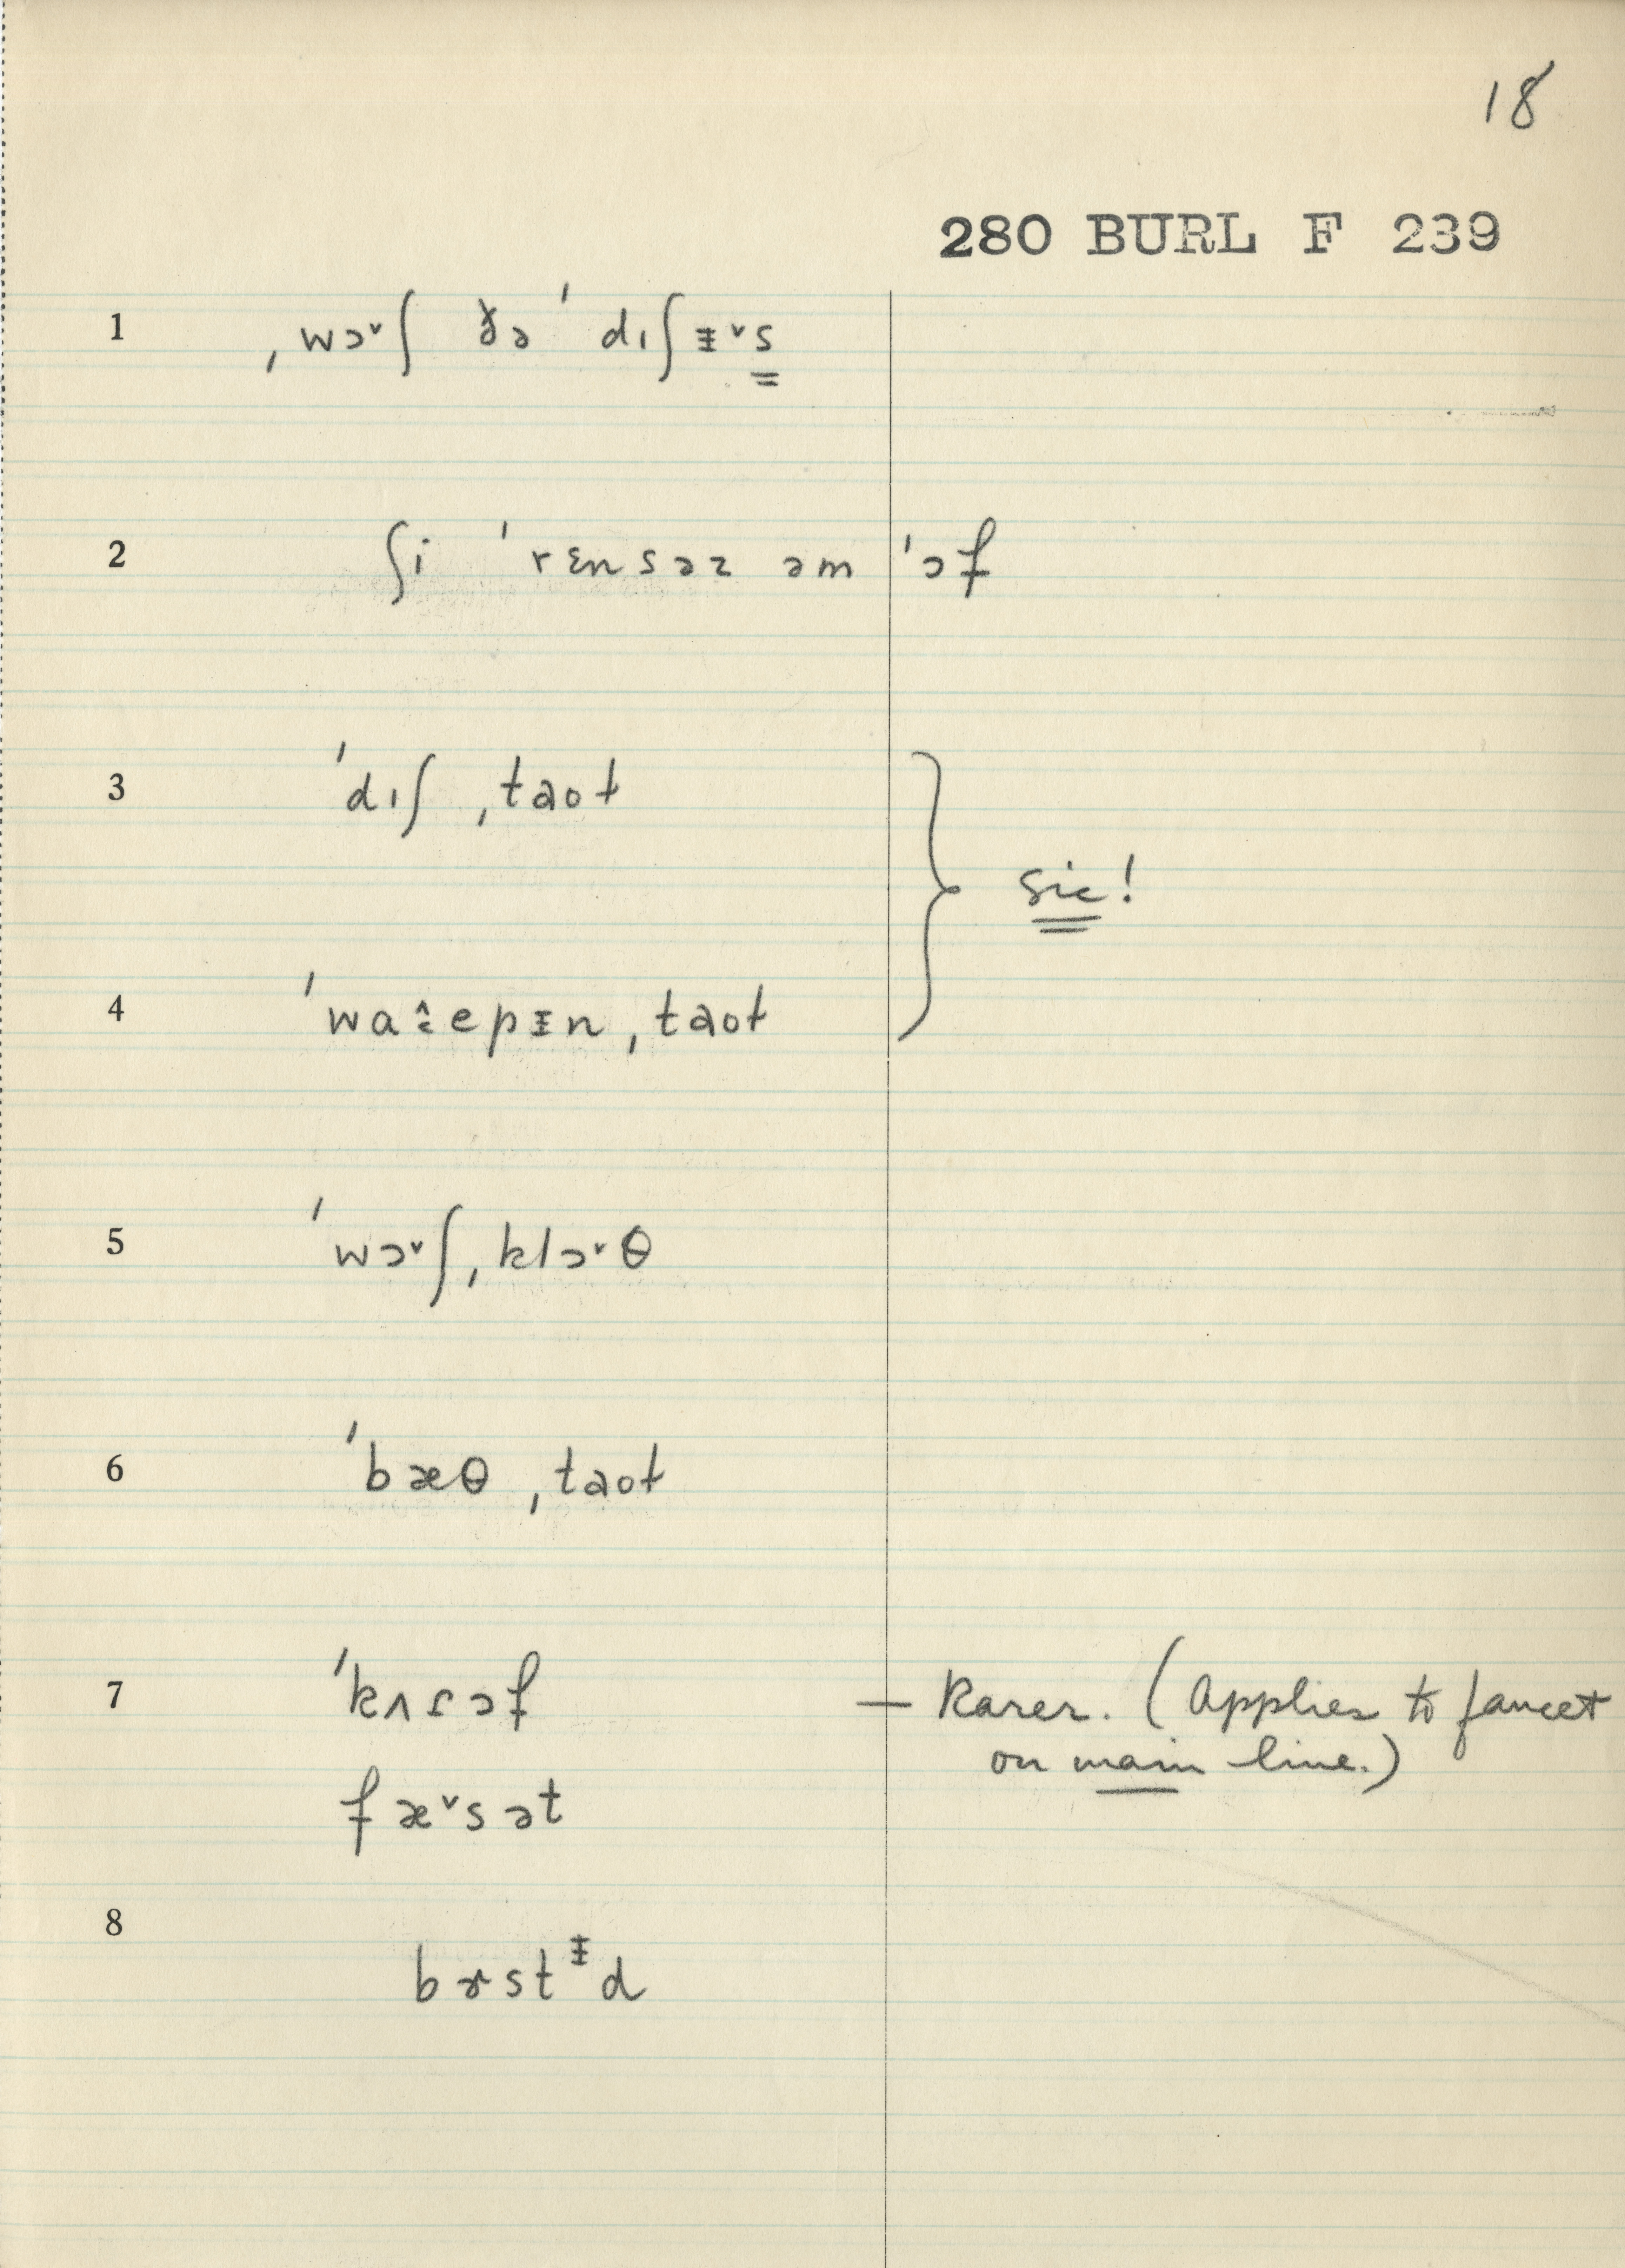 18
280 BURL F 239
1 ˌwɔ˅ʃ ðə ˈdıʃᵻ˅s
2 ʃi ˈrɛnsəz əm ˈɔf
3 ˈdıʃ ˌtaot
sic!
4 ˈwaɪepᵻn ˌtaot
5 ˈwɔ˅ʃ ˌklɔ˅θ
6 ˈbæθ ˌtaot
7 ˈkʌɾɔf — Rarer. (Applies to faucet
on main line.)
fæ˅sət
8
bɝstᵻd